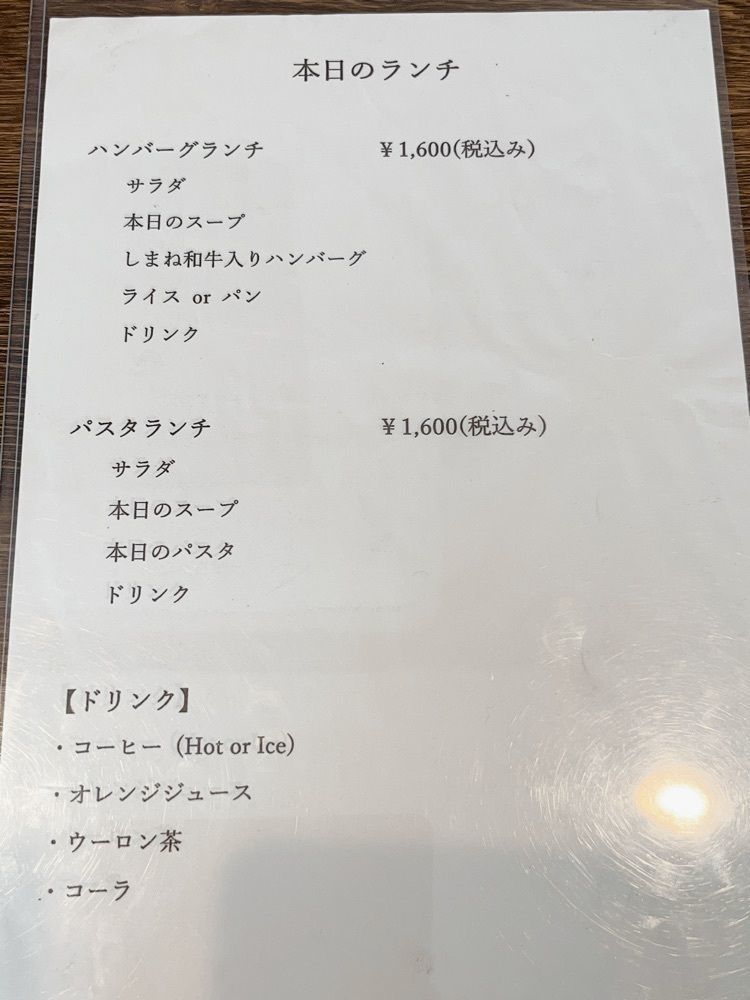 本日のランチ
ハンバーグランチ ¥1,600(税込み)
サラダ
本日のスープ
しまね和牛入りハンバーグ
ライス or パン
ドリンク
パスタランチ ¥1,600(税込み)
サラダ
本日のスープ
本日のパスタ
ドリンク
【ドリンク】
・コーヒー (Hot or Ice)
・オレンジジュース
・ウーロン茶
・コーラ